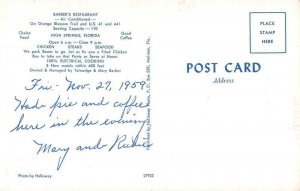 BARBER'S RESTAURANT
— Air Conditioned —
On Orange Blossom Trail and U.S. 41 and 441
Seating Capacity — 110
Choice Food
Good Coffee
HIGH SPRINGS, FLORIDA
Open 6 a.m. — Close 9 p.m.
CHICKEN STEAKS SEAFOOD
We pack Boxes to go. Let us fix you a Fried Chicken
Box to take on Picnic or Swim
100% ELECTRICAL COOKING
2 New motels within 400 feet
Owned & Managed by Talmadge & Mary Barber
Fri - Nov. 27, 1959
Had pie and coffee
here in the evening
Mary and
Photo by Holloway
57952
PLACE
STAMP
HERE
POST CARD
Address